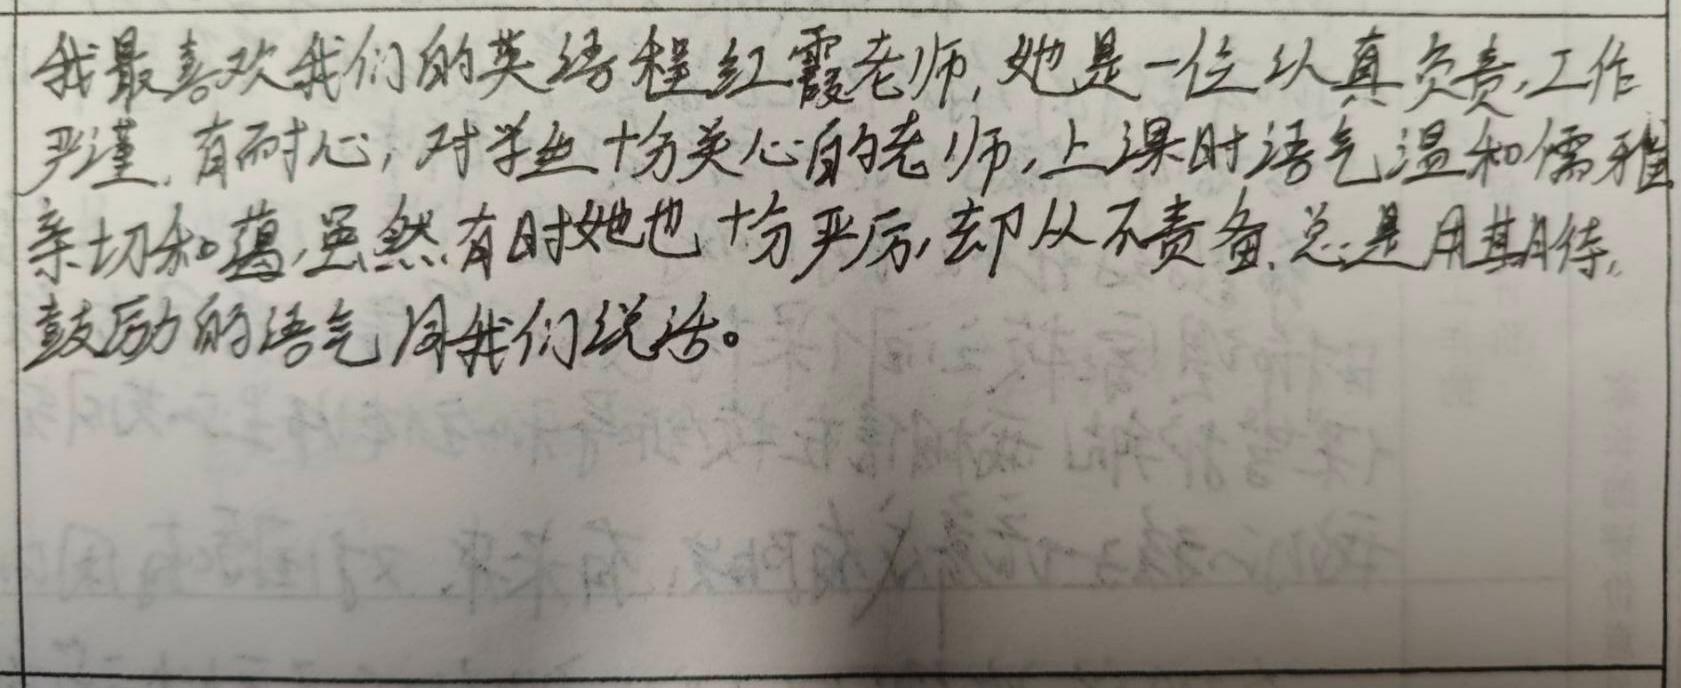 我最喜欢我们的英语程红霞老师,她是一位认真负责,工作
严谨,有耐心,对学生十分关心的老师,上课时语气温和儒雅
亲切和蔼,虽然有时她也十分严厉,却从不责备,总是用期待,
鼓励的语气同我们说话。